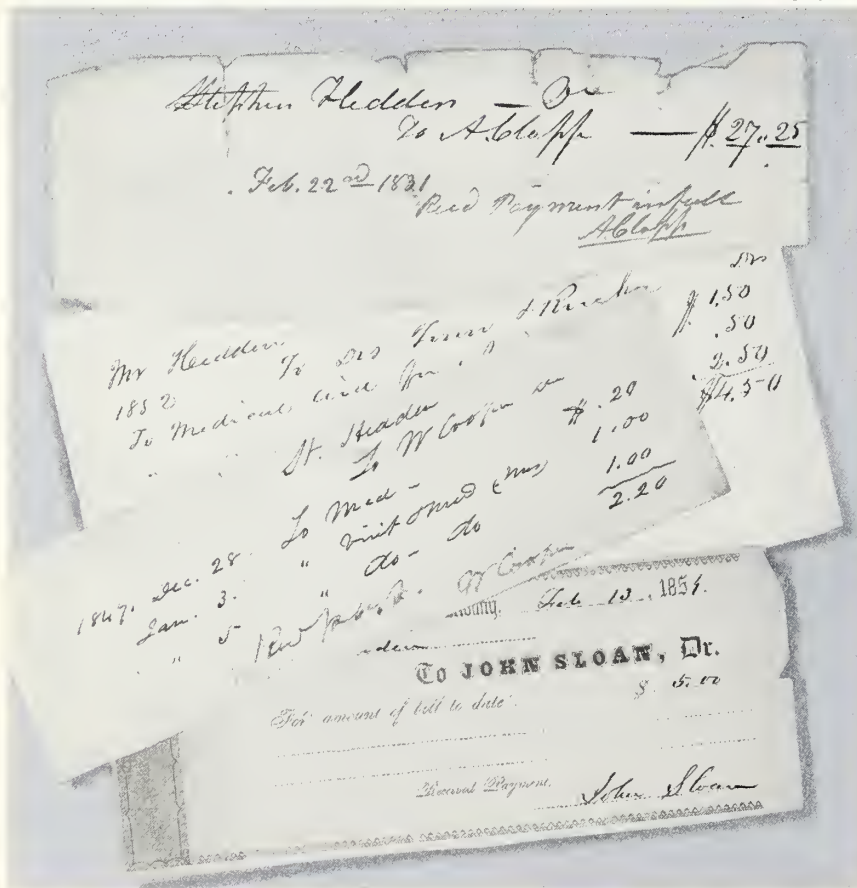 Stephen Hedden — Dr
To A Clapp — $27.25
Feb. 22nd 1831
Recd Payment in full
A Clapp
Mr Hedden
1852 To Drs
$1.50
To Medical .50
2.50
$4.50
St. Hedden
To W Cooper Dr
1847. Dec. 28. To Med - $.20
Jan. 3. " Visit & Med 1.00
" 5 " do - do 1.00
2.20
W Cooper
Feb 13, 185
To JOHN SLOAN, Dr.
For amount of bill to date. $ 5.00
Received Payment.
John Sloan